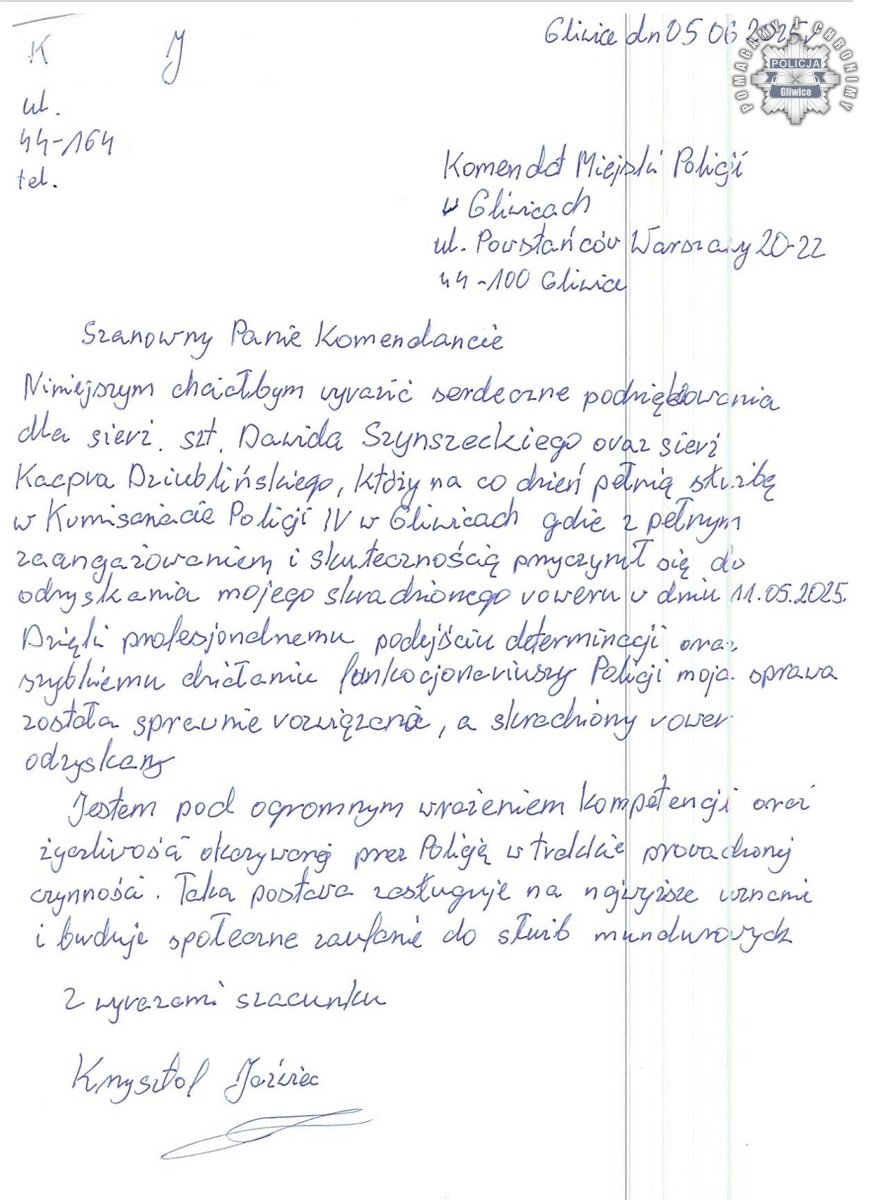 Gliwice dn 05 06 2025r
POMAGAMY I CHRONIMY
POLICJA
Gliwice
K J
ul.
44-164
tel.
Komendat Miejski Policji
w Gliwicach
ul. Powstańców Warszawy 20-22
44-100 Gliwice
Szanowny Panie Komendancie
Niniejszym chciałbym wyrazić serdeczne podziękowania
dla sierż. szt. Dawida Szynszeckiego oraz sierż
Kacpra Dziublińskiego, którzy na co dzień pełnią służbę
w Komisariacie Policji IV w Gliwicach gdzie z pełnym
zaangażowaniem i skutecznością przyczynił się do
odzyskania mojego skradzionego roweru w dniu 11.05.2025.
Dzięki profesjonalnemu podejściu determinacji oraz
szybkiemu działaniu funkocjonariuszy Policji moja sprawa
została sprawnie rozwiązana, a skradziony rower
odzyskany
Jestem pod ogromnym wrażeniem kompetencji oraz
życzliwości okazywanej przez Policją w trakcie prowadzonej
czynności. Taka postawa zasługuje na najwyższe uznanie
i buduje społeczne zaufanie do służb mundurowych
Z wyrazami szacunku
Krzysztof Jaźwiec